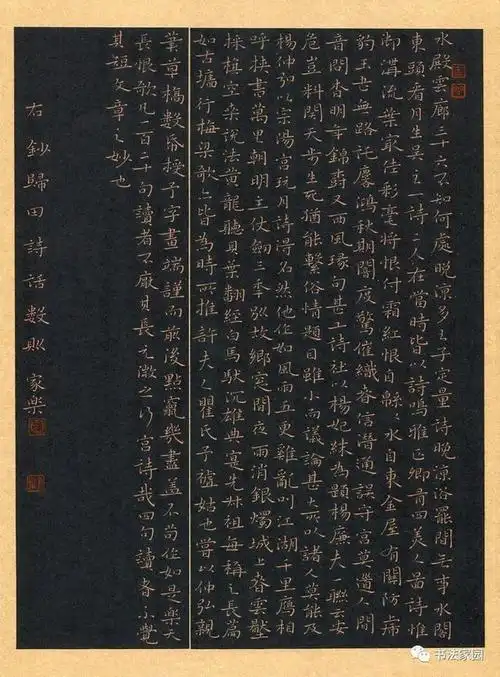 水殿雲廊三十六不知何處晚涼多王子定量詩晚涼浴罷閑無事水閣
東頭看月生吳之一詩二人在當時皆以詩鳴雅正卿青四美人圖詩惟
御溝流葉最佳彩毫將恨付霜紅恨自綿綿水自東金屋有關防虎
豹玉書無路託鱗鴻秋期闇度驚催織春信潛通誤守宮莫遣人間
音問香明年錦樹又西風琢句甚工詩社以楊妃襪為題楊廉夫一聯云安
危豈料關天步生死猶能繫俗情題目雖小而議論甚大所以諸人莫能及
楊仲弘以宗陽宮玩月詩得名然他作如風雨五更雞亂叫江湖千里鴈相
呼挾書萬里朝明主仗劒三年別故鄉窓間夜雨消銀燭城上春雲壓
採樓空桑說法黃龍聽貝葉翻經白馬馱沉雄典實先叔祖每稱之長篇
如古墻行梅梁歌之皆為時所推許夫人瞿氏予祖姑也嘗以仲弘親
筆草稿數帋授予字畫端謹而前後點竄幾盡蓋不苟作如是樂天
長恨歌凡一百二十句讀者不厭其長元微之行宮詩纔四句讀者不覺
其短文章之妙也
右鈔歸田詩話數則家樂
书法家园